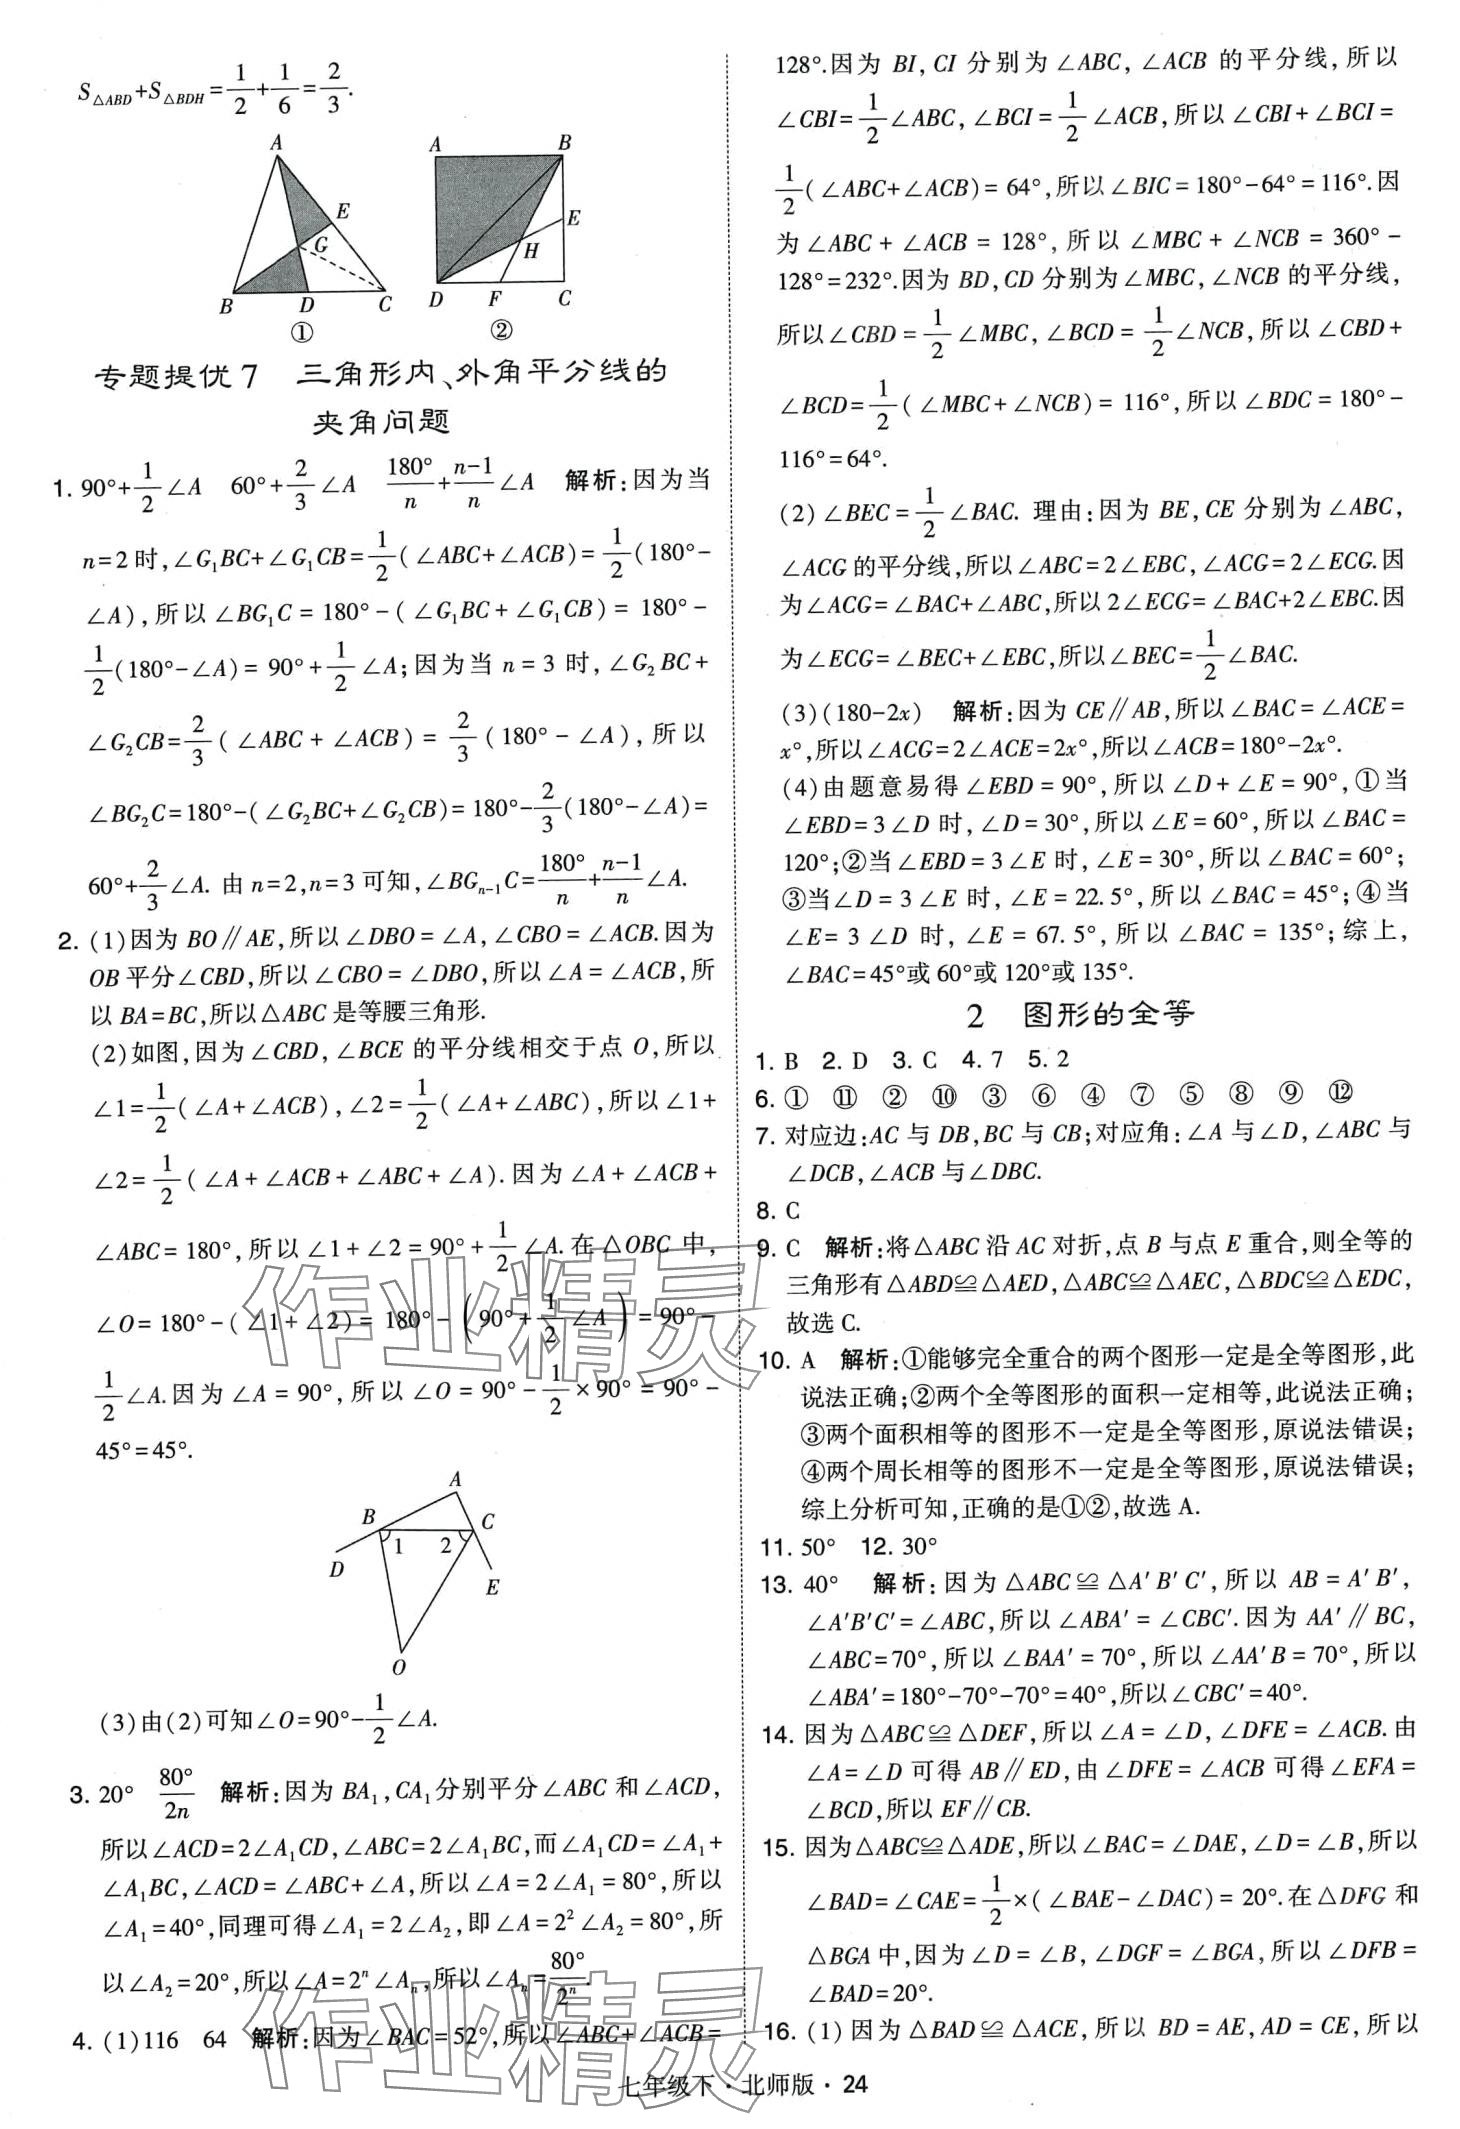 S△ABD+S△BDH=1/2+1/6=2/3.
A
E
G
B
D
C
①
A
B
E
H
D
F
C
②
专题提优7 三角形内、外角平分线的
夹角问题
1. 90°+1/2∠A 60°+2/3∠A 180°/n+(n-1)/n∠A 解析:因为当
n=2时,∠G₁BC+∠G₁CB=1/2(∠ABC+∠ACB)=1/2(180°-
∠A),所以∠BG₁C=180°-(∠G₁BC+∠G₁CB)=180°-
1/2(180°-∠A)=90°+1/2∠A;因为当n=3时,∠G₂BC+
∠G₂CB=2/3(∠ABC+∠ACB)=2/3(180°-∠A),所以
∠BG₂C=180°-(∠G₂BC+∠G₂CB)=180°-2/3(180°-∠A)=
60°+2/3∠A. 由n=2,n=3可知,∠BGₙ₋₁C=180°/n+(n-1)/n∠A.
2. (1)因为BO∥AE,所以∠DBO=∠A,∠CBO=∠ACB.因为
OB平分∠CBD,所以∠CBO=∠DBO,所以∠A=∠ACB,所
以BA=BC,所以△ABC是等腰三角形.
(2)如图,因为∠CBD,∠BCE的平分线相交于点O,所以
∠1=1/2(∠A+∠ACB),∠2=1/2(∠A+∠ABC),所以∠1+
∠2=1/2(∠A+∠ACB+∠ABC+∠A).因为∠A+∠ACB+
∠ABC=180°,所以∠1+∠2=90°+1/2∠A.在△OBC中,
∠O=180°-(∠1+∠2)=180°-(90°+1/2∠A)=90°-
1/2∠A.因为∠A=90°,所以∠O=90°-1/2×90°=90°-
45°=45°.
A
B
C
1
2
D
E
O
(3)由(2)可知∠O=90°-1/2∠A.
3. 20° 80°/2n 解析:因为BA₁,CA₁分别平分∠ABC和∠ACD,
所以∠ACD=2∠A₁CD,∠ABC=2∠A₁BC,而∠A₁CD=∠A₁+
∠A₁BC,∠ACD=∠ABC+∠A,所以∠A=2∠A₁=80°,所以
∠A₁=40°,同理可得∠A₁=2∠A₂,即∠A=2²∠A₂=80°,所
以∠A₂=20°,所以∠A=2ⁿ∠Aₙ,所以∠Aₙ=80°/2ⁿ.
4. (1)116 64 解析:因为∠BAC=52°,所以∠ABC+∠ACB=
128°.因为BI,CI分别为∠ABC,∠ACB的平分线,所以
∠CBI=1/2∠ABC,∠BCI=1/2∠ACB,所以∠CBI+∠BCI=
1/2(∠ABC+∠ACB)=64°,所以∠BIC=180°-64°=116°.因
为∠ABC+∠ACB=128°,所以∠MBC+∠NCB=360°-
128°=232°.因为BD,CD分别为∠MBC,∠NCB的平分线,
所以∠CBD=1/2∠MBC,∠BCD=1/2∠NCB,所以∠CBD+
∠BCD=1/2(∠MBC+∠NCB)=116°,所以∠BDC=180°-
116°=64°.
(2)∠BEC=1/2∠BAC. 理由:因为BE,CE分别为∠ABC,
∠ACG的平分线,所以∠ABC=2∠EBC,∠ACG=2∠ECG.因
为∠ACG=∠BAC+∠ABC,所以2∠ECG=∠BAC+2∠EBC.因
为∠ECG=∠BEC+∠EBC,所以∠BEC=1/2∠BAC.
(3)(180-2x) 解析:因为CE∥AB,所以∠BAC=∠ACE=
x°,所以∠ACG=2∠ACE=2x°,所以∠ACB=180°-2x°.
(4)由题意易得∠EBD=90°,所以∠D+∠E=90°,①当
∠EBD=3∠D时,∠D=30°,所以∠E=60°,所以∠BAC=
120°;②当∠EBD=3∠E时,∠E=30°,所以∠BAC=60°;
③当∠D=3∠E时,∠E=22.5°,所以∠BAC=45°;④当
∠E=3∠D时,∠E=67.5°,所以∠BAC=135°;综上,
∠BAC=45°或60°或120°或135°.
2 图形的全等
1. B 2. D 3. C 4. 7 5. 2
6. ① ⑪ ② ⑩ ③ ⑥ ④ ⑦ ⑤ ⑧ ⑨ ⑫
7. 对应边:AC与DB,BC与CB;对应角:∠A与∠D,∠ABC与
∠DCB,∠ACB与∠DBC.
8. C
9. C 解析:将△ABC沿AC对折,点B与点E重合,则全等的
三角形有△ABD≌△AED,△ABC≌△AEC,△BDC≌△EDC,
故选C.
10. A 解析:①能够完全重合的两个图形一定是全等图形,此
说法正确;②两个全等图形的面积一定相等,此说法正确;
③两个面积相等的图形不一定是全等图形,原说法错误;
④两个周长相等的图形不一定是全等图形,原说法错误;
综上分析可知,正确的是①②,故选A.
11. 50° 12. 30°
13. 40° 解析:因为△ABC≌△A′B′C′,所以AB=A′B′,
∠A′B′C′=∠ABC,所以∠ABA′=∠CBC′.因为AA′∥BC,
∠ABC=70°,所以∠BAA′=70°,所以∠AA′B=70°,所以
∠ABA′=180°-70°-70°=40°,所以∠CBC′=40°.
14. 因为△ABC≌△DEF,所以∠A=∠D,∠DFE=∠ACB.由
∠A=∠D可得AB∥ED,由∠DFE=∠ACB可得∠EFA=
∠BCD,所以EF∥CB.
15. 因为△ABC≌△ADE,所以∠BAC=∠DAE,∠D=∠B,所以
∠BAD=∠CAE=1/2×(∠BAE-∠DAC)=20°.在△DFG和
△BGA中,因为∠D=∠B,∠DGF=∠BGA,所以∠DFB=
∠BAD=20°.
16. (1)因为△BAD≌△ACE,所以BD=AE,AD=CE,所以
作业精灵
作业精灵
七年级下·北师版·24